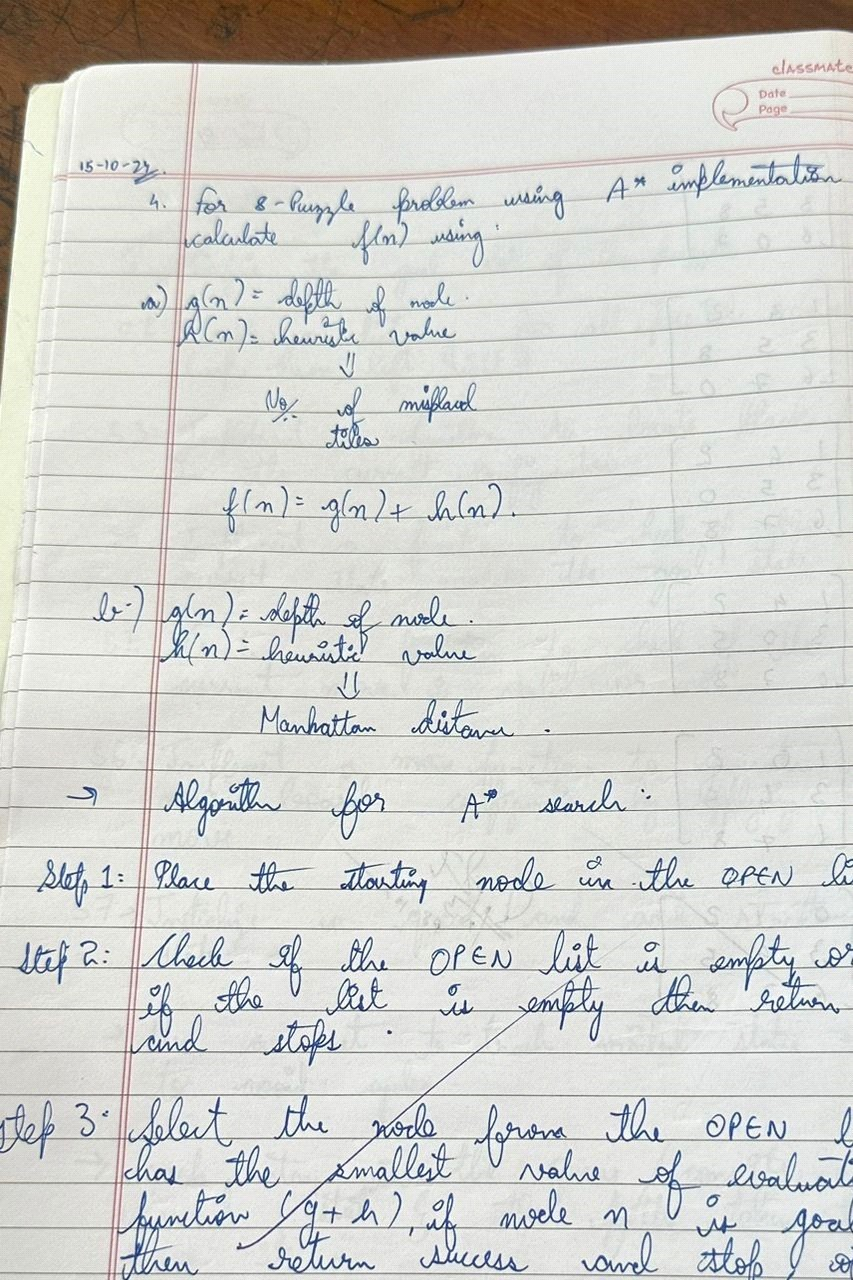 classmate
Date
Page
15-10-24.
4. For 8-Puzzle problem using A* implementation
calculate f(n) using:
a) g(n) = depth of node.
h(n) = heuristic value
⇓
No. of misplacd
tiles
f(n) = g(n) + h(n).
b.) g(n) = depth of node.
h(n) = heuristic value
⇓
Manhattan distance.
→ Algorithm for A* search:
Step 1: Place the starting node in the OPEN li
Step 2: Check if the OPEN list is empty or
if the list is empty then return
and stops.
Step 3: Select the node from the OPEN l
has the smallest value of evaluat
function (g+h), if node n is goal
then return success and stop, o